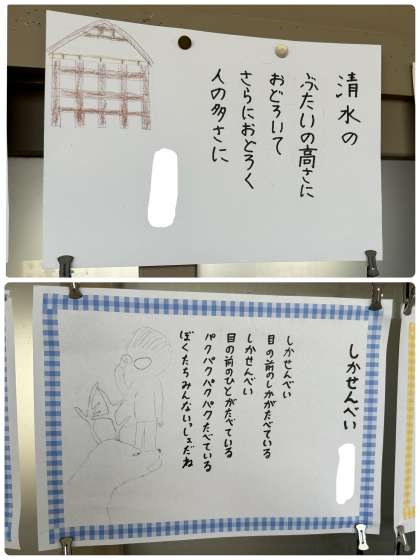 清水の
ぶたいの高さに
おどろいて
さらにおどろく
人の多さに
しかせんべい
しかせんべい
目の前のしかがたべている
しかせんべい
目の前のひとがたべている
パクパクパクパクたべている
ぼくたちみんないっしょだね